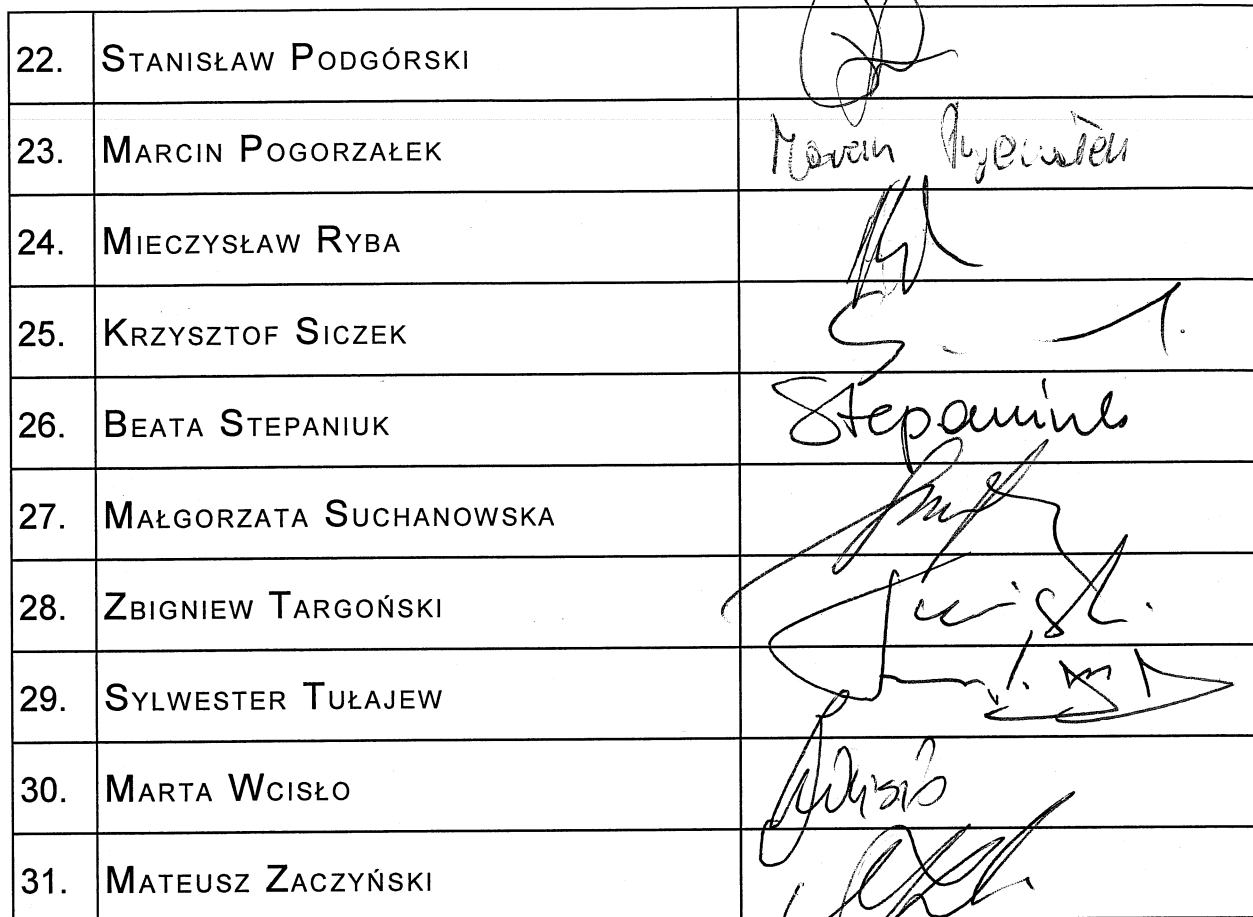 22. STANISŁAW PODGÓRSKI
23. MARCIN POGORZAŁEK Marcin
24. MIECZYSŁAW RYBA
25. KRZYSZTOF SICZEK
26. BEATA STEPANIUK Stepaniuk
27. MAŁGORZATA SUCHANOWSKA
28. ZBIGNIEW TARGOŃSKI
29. SYLWESTER TUŁAJEW
30. MARTA WCISŁO
31. MATEUSZ ZACZYŃSKI